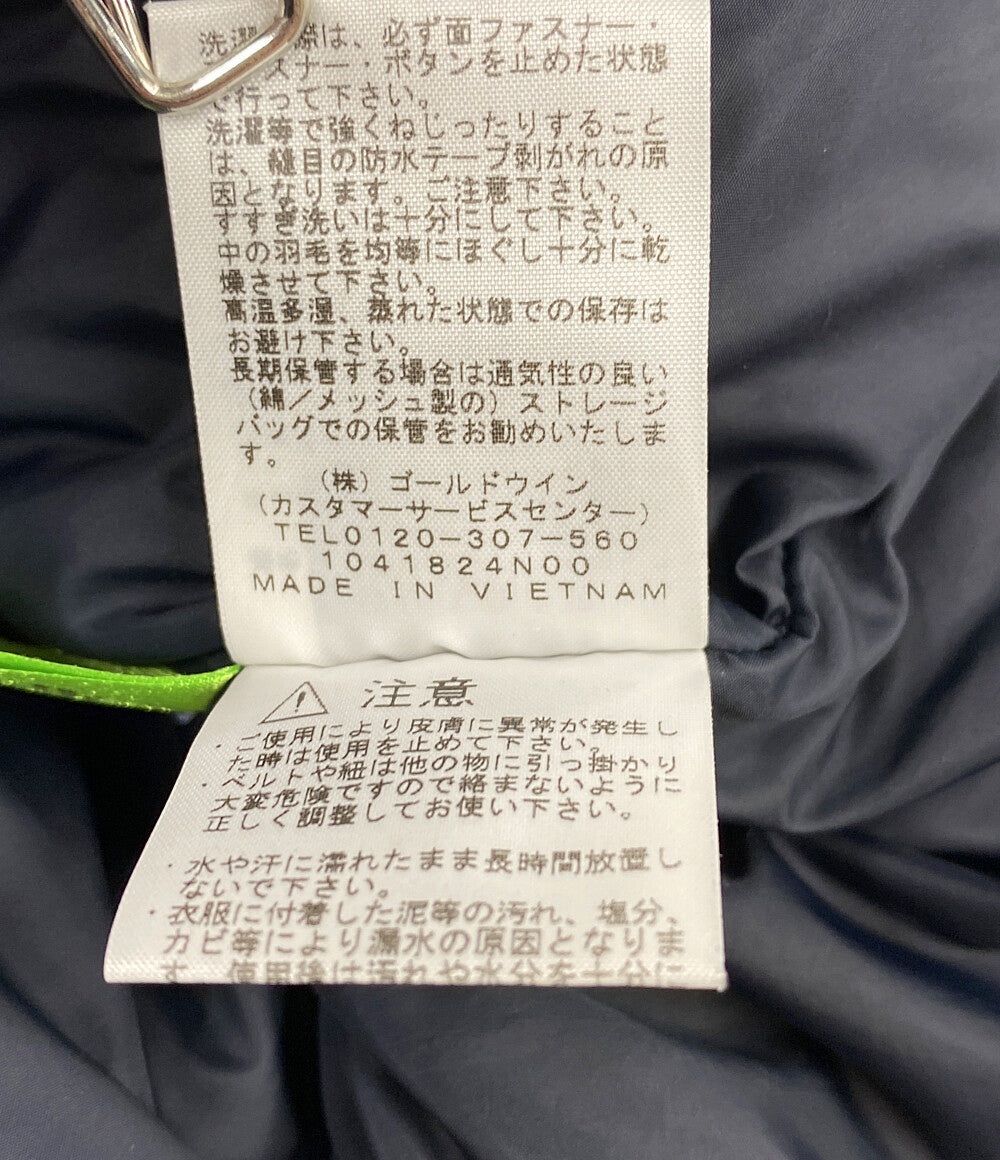 洗濯際は、必ず面ファスナー・
スナー・ボタンを止めた状態
で行って下さい。
洗濯等で強くねじったりすること
は、縫目の防水テープ剥がれの原
因となります。ご注意下さい。
すすぎ洗いは十分にして下さい。
中の羽毛を均等にほぐし十分に乾
燥させて下さい。
高温多湿、蒸れた状態での保存は
お避け下さい。
長期保管する場合は通気性の良い
（綿／メッシュ製の）ストレージ
バッグでの保管をお勧めいたしま
す。
（株）ゴールドウイン
（カスタマーサービスセンター）
TEL0120-307-560
1041824N00
MADE IN VIETNAM
注意
・ご使用により皮膚に異常が発生し
た時は使用を止めて下さい。
・ベルトや紐は他の物に引っ掛かり
大変危険ですので絡まないように
正しく調整してお使い下さい。
・水や汗に濡れたまま長時間放置し
ないで下さい。
・衣服に付着した泥等の汚れ、塩分、
カビ等により漏水の原因となりま
す。使用後は汚れや水分を十分に